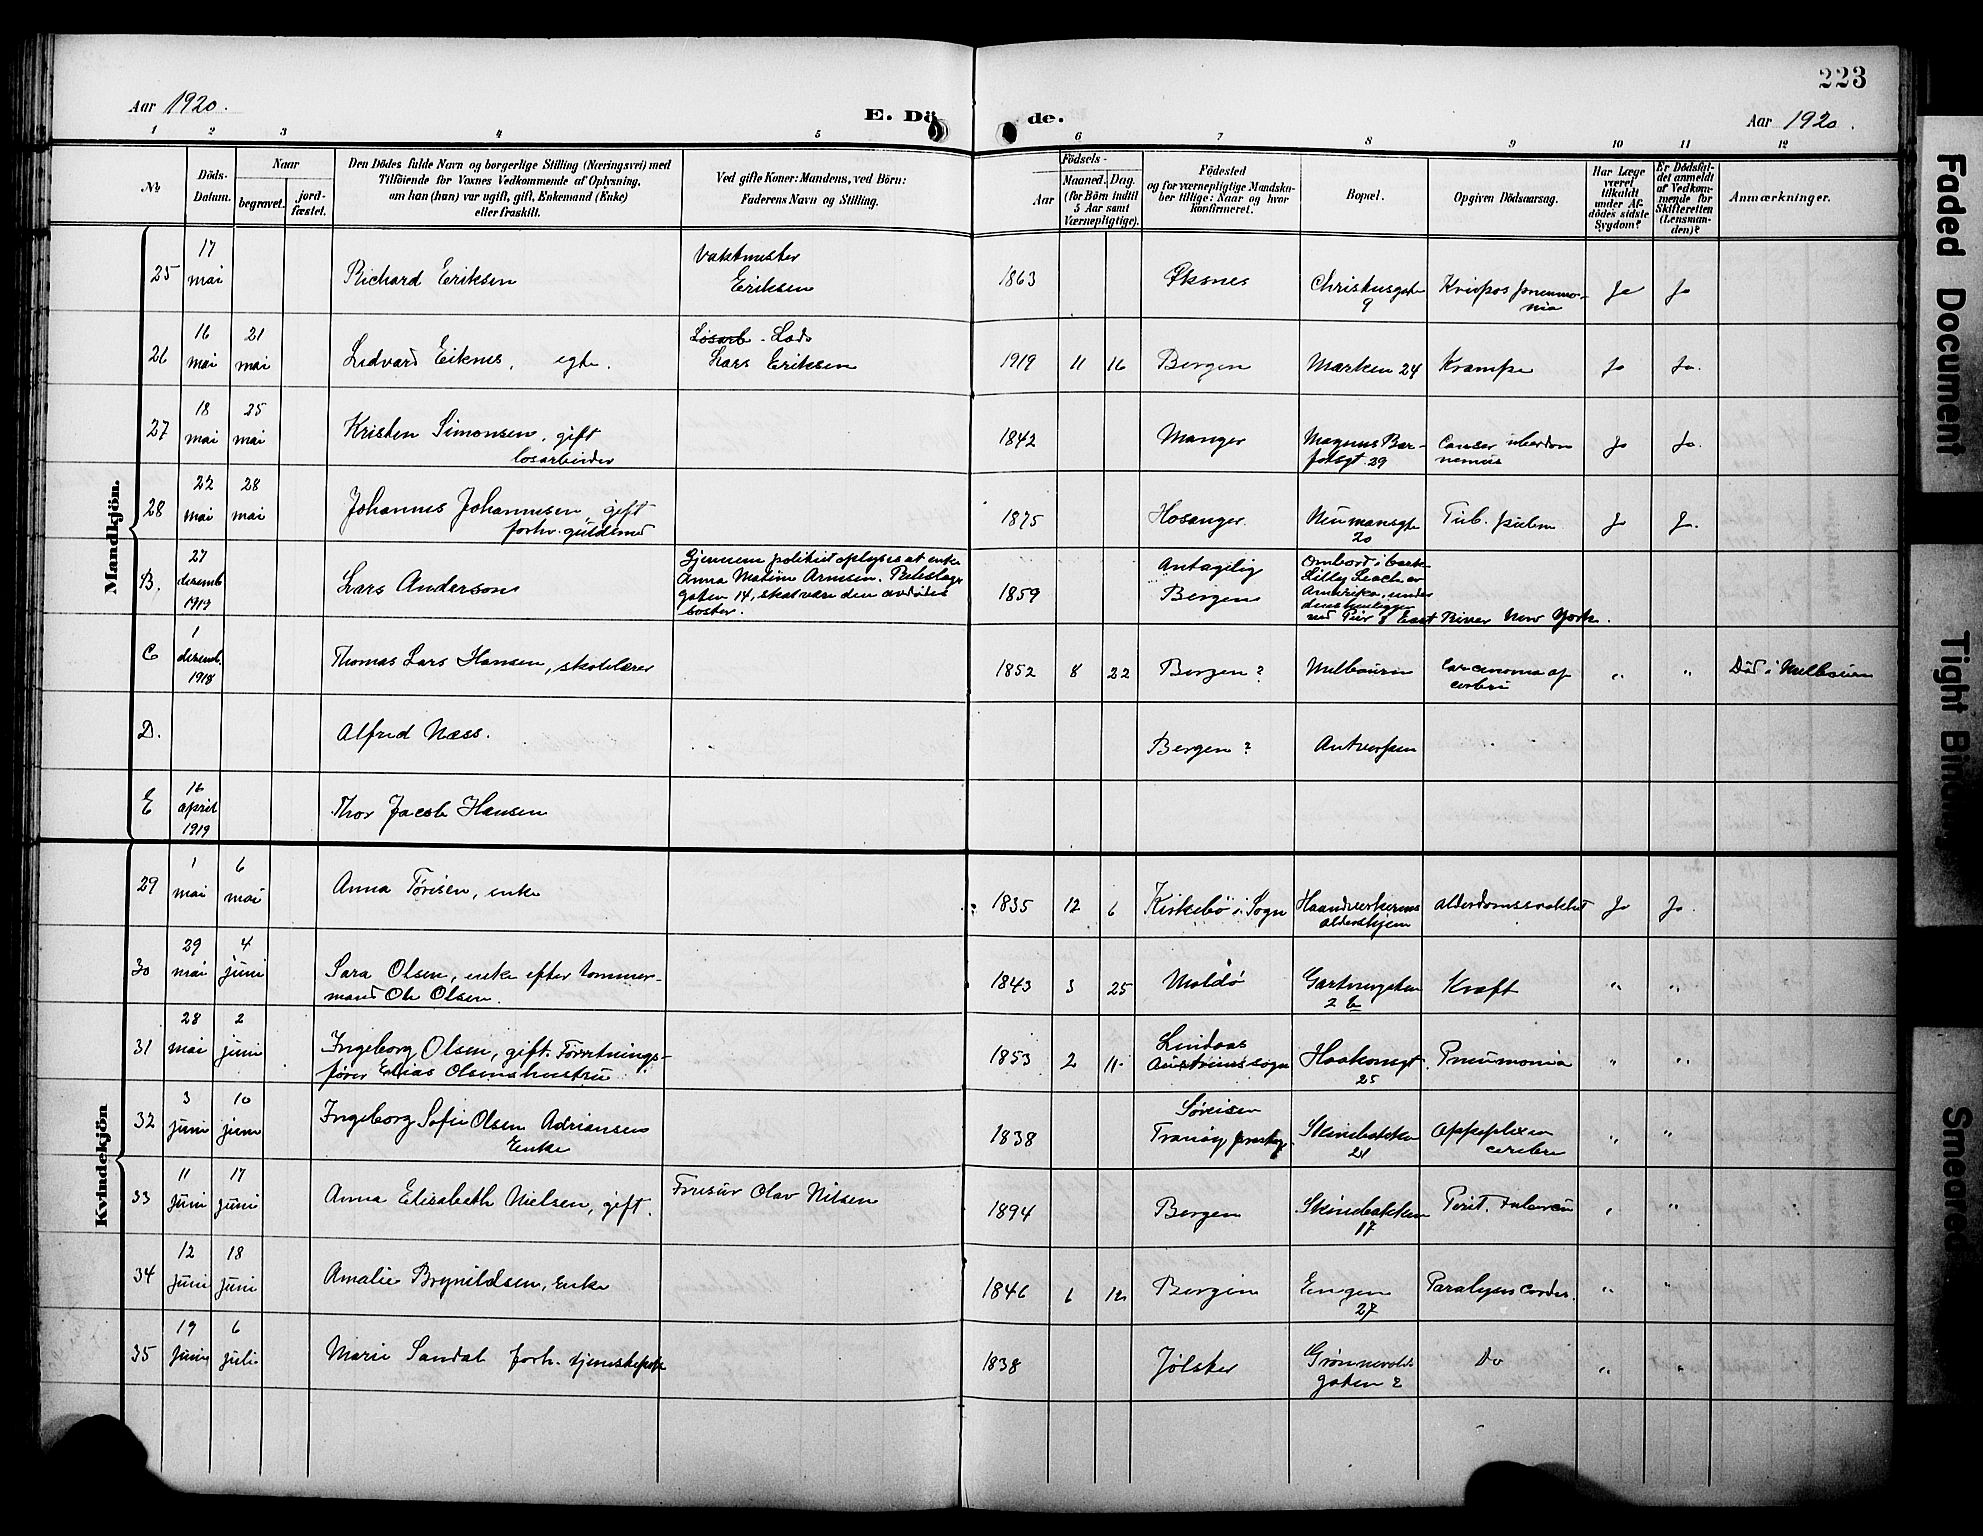 223
Aar 1920.
E. Dö
de.
Aar 1920.
1 2 3 4 5 6 7 8 9 10 11 12
№
Döds-
Datum.
Naar
begravet.
jord-
fæstet.
Den Dödes fulde Navn og borgerlige Stilling (Næringsvei) med
Tilföiende for Voxnes Vedkommende af Oplysning,
om han (hun) var ugift, gift, Enkemand (Enke)
eller fraskilt.
Ved gifte Koner: Mandens, ved Börn:
Faderens Navn og Stilling.
Födsels-
Aar
Maaned.
Dag.
(for Börn indtil
5 Aar samt
Værnepligtige).
Födested
og for værnepligtige Mandska-
ber tillige: Naar og hvor
konfirmeret.
Bopæl.
Opgiven Dödsaarsag.
Har Læge
været
tilkaldt
under Af-
dödes sidste
Sygdom?
Er Dödsfal-
det anmeldt
af Vedkom-
mende for
Skifteretten
(Lensman-
den)?
Anmærkninger.
Mandkjön.
25 17 mai Richard Eriksen Vaktmester Eriksen 1863 Øksnes Christiesgate 9 Krupøs pneumo-
nia Ja Ja
26 16 mai 21 mai Lidvard Eiknes, egte. Løsarb. Lars Eriksen 1919 11 16 Bergen Marken 24 Krampe Ja Ja.
27 18 mai 25 mai Kristen Simonsen, gift
løsarbeider 1842 Manger Magnus Bar-
fotsgt. 29 Cancer Ja Ja.
28 22 mai 28 mai Johannes Johannesen, gift
forhv. 1875 Hosanger. Neumansgte
20 Tub. pulm Ja Ja.
B. 27 desemb 1919 Lars Anderson Gjennem politiet oplyses at enke
Anna Arnesen,
gaten 14, skal være den avdødes
søster. 1859 Antagelig
Bergen Ombord i bark
Lilly
Amerika, under
ved Pier 8 East River New York.
C 1 desemb. 1918 Thomas Lars Hansen, skolelærer 1852 8 22 Bergen? Melbourn Carcenoma af
cerebri " " Död i Melbourn
D. Alfred Næss. Bergen? Antverpen
E 16 april 1919 Thor Jacob Hansen
Kvindekjön
29 1 mai 6 mai Anna Tørisen, enke 1835 12 6 Kirkebö i Sogn Haandverkernes
aldershjem alderdomssvakhet Ja Ja.
30 29 mai 4 juni Sara Olsen, enke efter tømmer-
mand Ole Olsen. 1843 3 25 Maldö Gartnergaten
2 b Kræft " "
31 28 mai 2 juni Ingeborg Olsen, gift. Forretnings-
fører Elias Olsens hustru 1853 2 11 Lindaas
Austreimssogn Haakonsgt
25 Pneumonia " "
32 3 juni 10 juni Ingeborg Sofie Olsen Adriansen
Enke 1838 Søreisen
Tranøy prestegj. Skivebakken
21 Appoplexia
cerebri " "
33 11 Juni 17 juni Anna Elisabeth Nielsen, gift. Frisör Olav Nilsen 1894 Bergen Skivebakken
17 Perit. tubercu " "
34 12 Juni 18 Juni Amalie Brynildsen, Enke 1846 6 12 Bergen Engen
27 Paralysis cordis. " "
35 19 Juni 6 juli Marie Sandal forh. tjenestepike 1838 Jølster Grønnevolds
gaten 2 Do " "
Faded Document
Tight Binding
Smeared